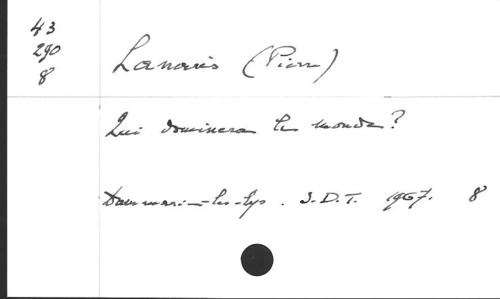 43
290
8
Lanarès (Pierre)
Qui dominera le monde?
Dammarie-les-Lys. S.D.T. 1967. 8